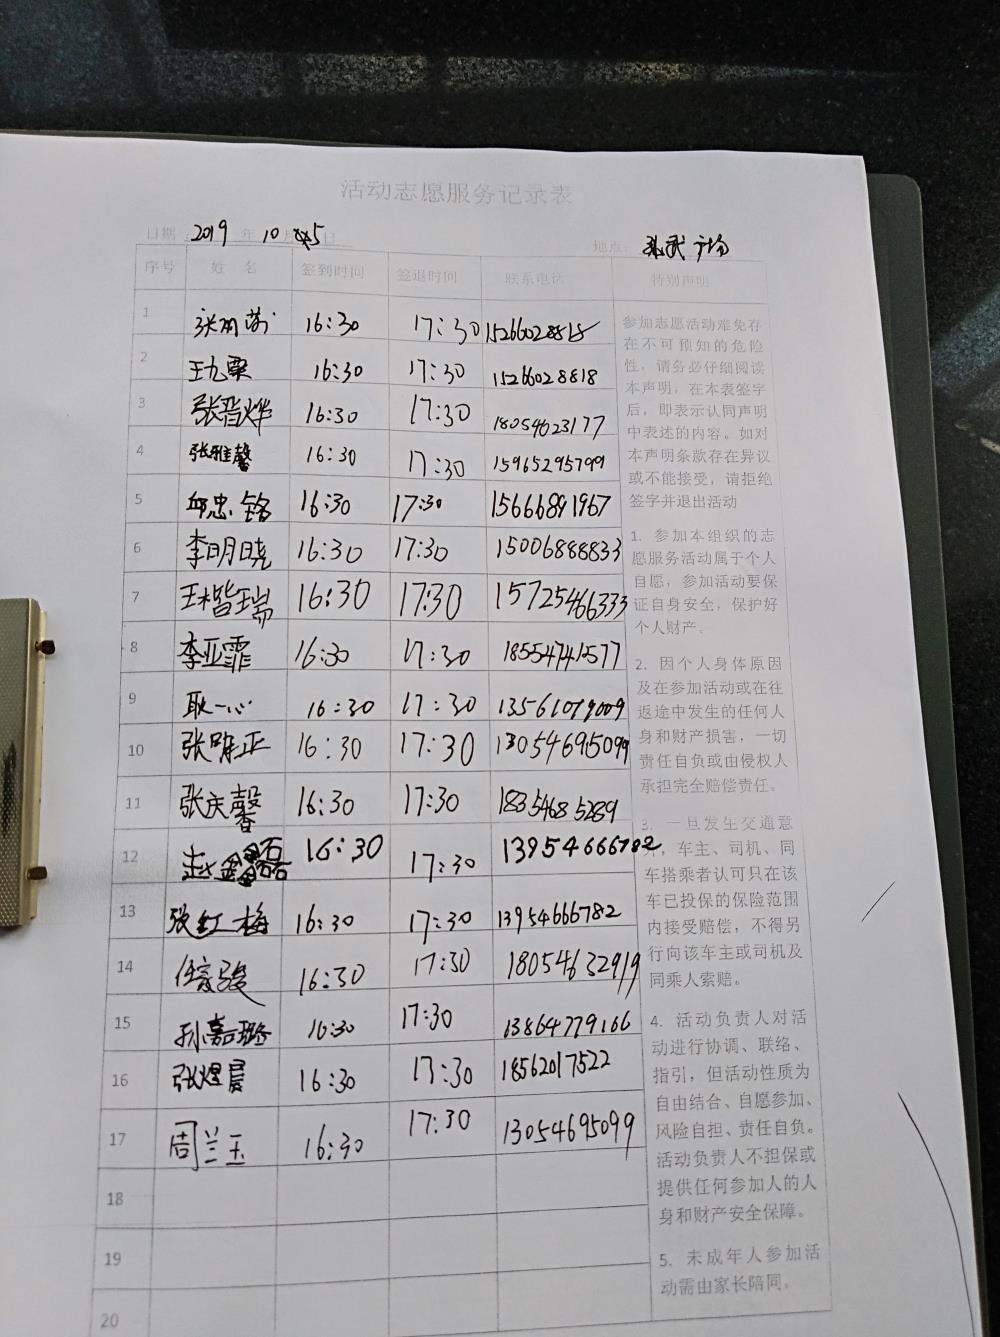 活动志愿服务记录表
日期: 2019 年 10 月 5 日
地点: 孙武广场
序号 姓 名 签到时间 签退时间 联系电话 特别声明
1 16:30 17:30 15266028818
2 王九粟 16:30 17:30 15266028818
3 张晋烨 16:30 17:30 18054623177
4 张雅馨 16:30 17:30 15965295799
5 邱忠铭 16:30 17:30 15666891967
6 李明晓 16:30 17:30 15006888833
7 王楷瑞 16:30 17:30 15725466333
8 李亚霏 16:30 17:30 18554741577
9 耿一心 16:30 17:30 13561079009
10 张唯正 16:30 17:30 13054695099
11 张庆馨 16:30 17:30 18354685289
12 赵鑫磊 16:30 17:30 13954666782
13 张红梅 16:30 17:30 13954666782
14 16:30 17:30 18054632919
15 孙嘉璐 16:30 17:30 13864779166
16 张煜晨 16:30 17:30 18562017522
17 周兰玉 16:30 17:30 13054695099
18
19
20
参加志愿活动难免存
在不可预知的危险
性，请务必仔细阅读
本声明，在本表签字
后，即表示认同声明
中表述的内容。如对
本声明条款存在异议
或不能接受，请拒绝
签字并退出活动
1. 参加本组织的志
愿服务活动属于个人
自愿，参加活动要保
证自身安全，保护好
个人财产。
2. 因个人身体原因
及在参加活动或在往
返途中发生的任何人
身和财产损害，一切
责任自负或由侵权人
承担完全赔偿责任。
3. 一旦发生交通意
外，车主、司机、同
车搭乘者认可只在该
车已投保的保险范围
内接受赔偿，不得另
行向该车主或司机及
同乘人索赔。
4. 活动负责人对活
动进行协调、联络、
指引，但活动性质为
自由结合、自愿参加、
风险自担、责任自负。
活动负责人不担保或
提供任何参加人的人
身和财产安全保障。
5. 未成年人参加活
动需由家长陪同。